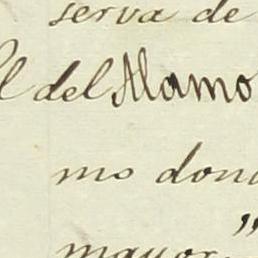 serva de
l del Alamo
mo dond
"
mayor.